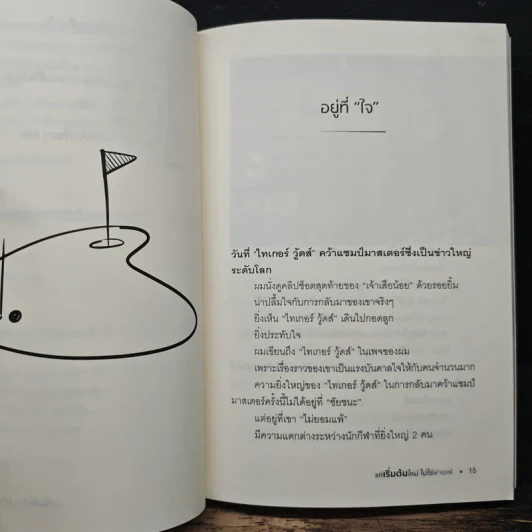 อยู่ที่ “ใจ”
วันที่ “ไทเกอร์ วู้ดส์” คว้าแชมป์มาสเตอร์ซึ่งเป็นข่าวใหญ่
ระดับโลก
ผมนั่งดูคลิปช็อตสุดท้ายของ “เจ้าเสือน้อย” ด้วยรอยยิ้ม
น่าปลื้มใจกับการกลับมาของเขาจริงๆ
ยิ่งเห็น “ไทเกอร์ วู้ดส์” เดินไปกอดลูก
ยิ่งประทับใจ
ผมเขียนถึง “ไทเกอร์ วู้ดส์” ในเพจของผม
เพราะเรื่องราวของเขาเป็นแรงบันดาลใจให้กับคนจำนวนมาก
ความยิ่งใหญ่ของ “ไทเกอร์ วู้ดส์” ในการกลับมาคว้าแชมป์
มาสเตอร์ครั้งนี้ไม่ได้อยู่ที่ “ชัยชนะ”
แต่อยู่ที่เขา “ไม่ยอมแพ้”
มีความแตกต่างระหว่างนักกีฬาที่ยิ่งใหญ่ 2 คน
แค่เริ่มต้นใหม่ ไม่ใช่พ่ายแพ้ • 15